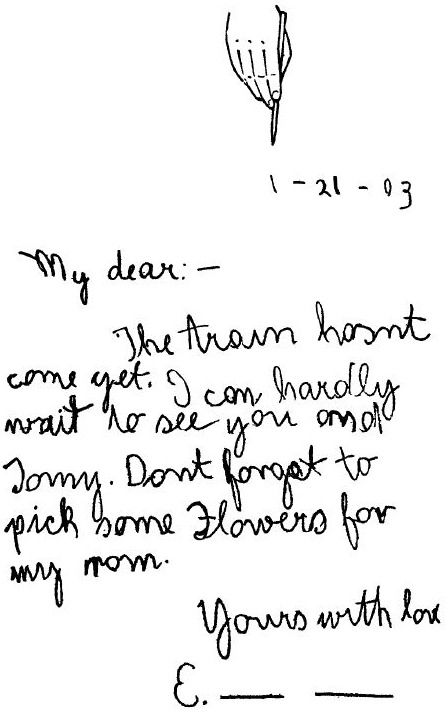 1 - 21 - 03
My dear: -
The train hasnt
come yet. I can hardly
wait to see you and
Tomy. Dont forget to
pick some Flowers for
my mom.
Yours with love
E. — —